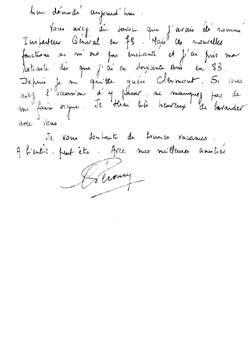 bien démodé aujourd'hui.
Vous avez dû savoir que j'avais été nommé
Inspecteur Général en 78. Mais ces nouvelles
fonctions ne m'ont pas enchanté et j'ai pris ma
retraite dès que j'ai eu soixante ans en 83
Depuis je ne quitte guère Clermont. Si vous
avez l'occasion d'y passer, ne manquez pas de
me faire signe. Je serai très heureux de bavarder
avec vous.
Je vous souhaite de bonnes vacances.
A bientôt, peut être. Avec mes meilleures amitiés